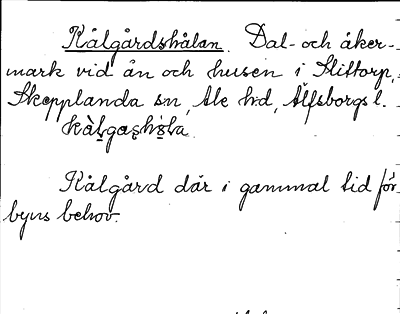 Kålgårdshålan. Dal- och åker-
mark vid ån och husen i Slittorp,
Skepplanda sn, Ale hd, Älfsborgs l.
Kålgård där i gammal tid för
byns behov.